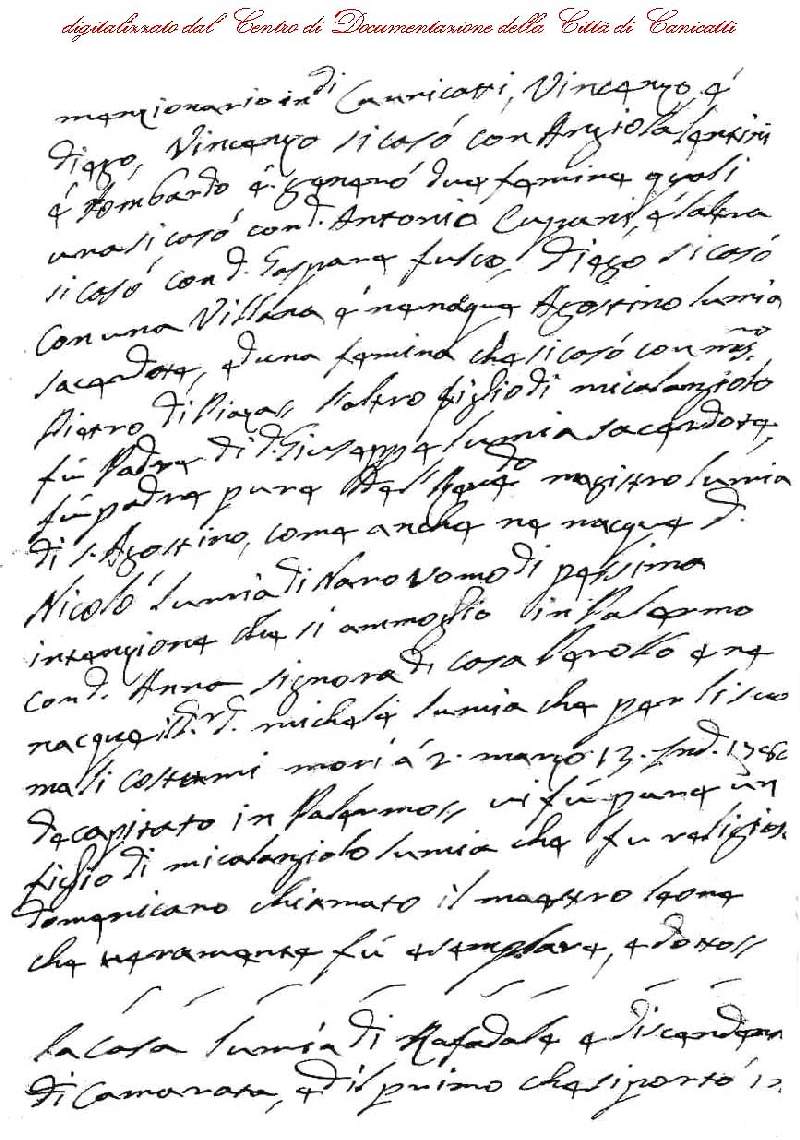 digitalizzato dal Centro di Documentazione della Città di Canicattì
menzionario in di Cannicatti, Vincenzo é
diego, Vincenzo si casó con Angiola lentini
é lombardo é generó due femine quali
una si casó con d. Antonio Cuppani, é l'altra
si casó con d. Gaspare fulco, diego si casó
con una Villana é ne nacque Agostino lumia
sacerdote, ed una femina che si casó con mro.
Pietro di Piazza l'altro figlio di micalangiolo
fú Padre di d. Giuseppe lumia sacerdote,
fú padre pure del magistro lumia
di s. Agostino, come anche ne nacque d.
Nicoló lumia di Naro Uomo di pessima
intenzione che si ammoglió in Palermo
con d. Anna signora di casa Perollo e ne
nacque il d. michele lumia che per li suoi
mali costumi morí á 2. marzo 13. Ind. 178
decapitato in Palermo vi fú pure un
figlio di micalangiolo lumia che fu religios
domenicano chiamato il maestro leone
che veramente fú esemplare, e dotto
la casa lumia di Rafadale e discenden
di Camarata, ed il primo che si portó in